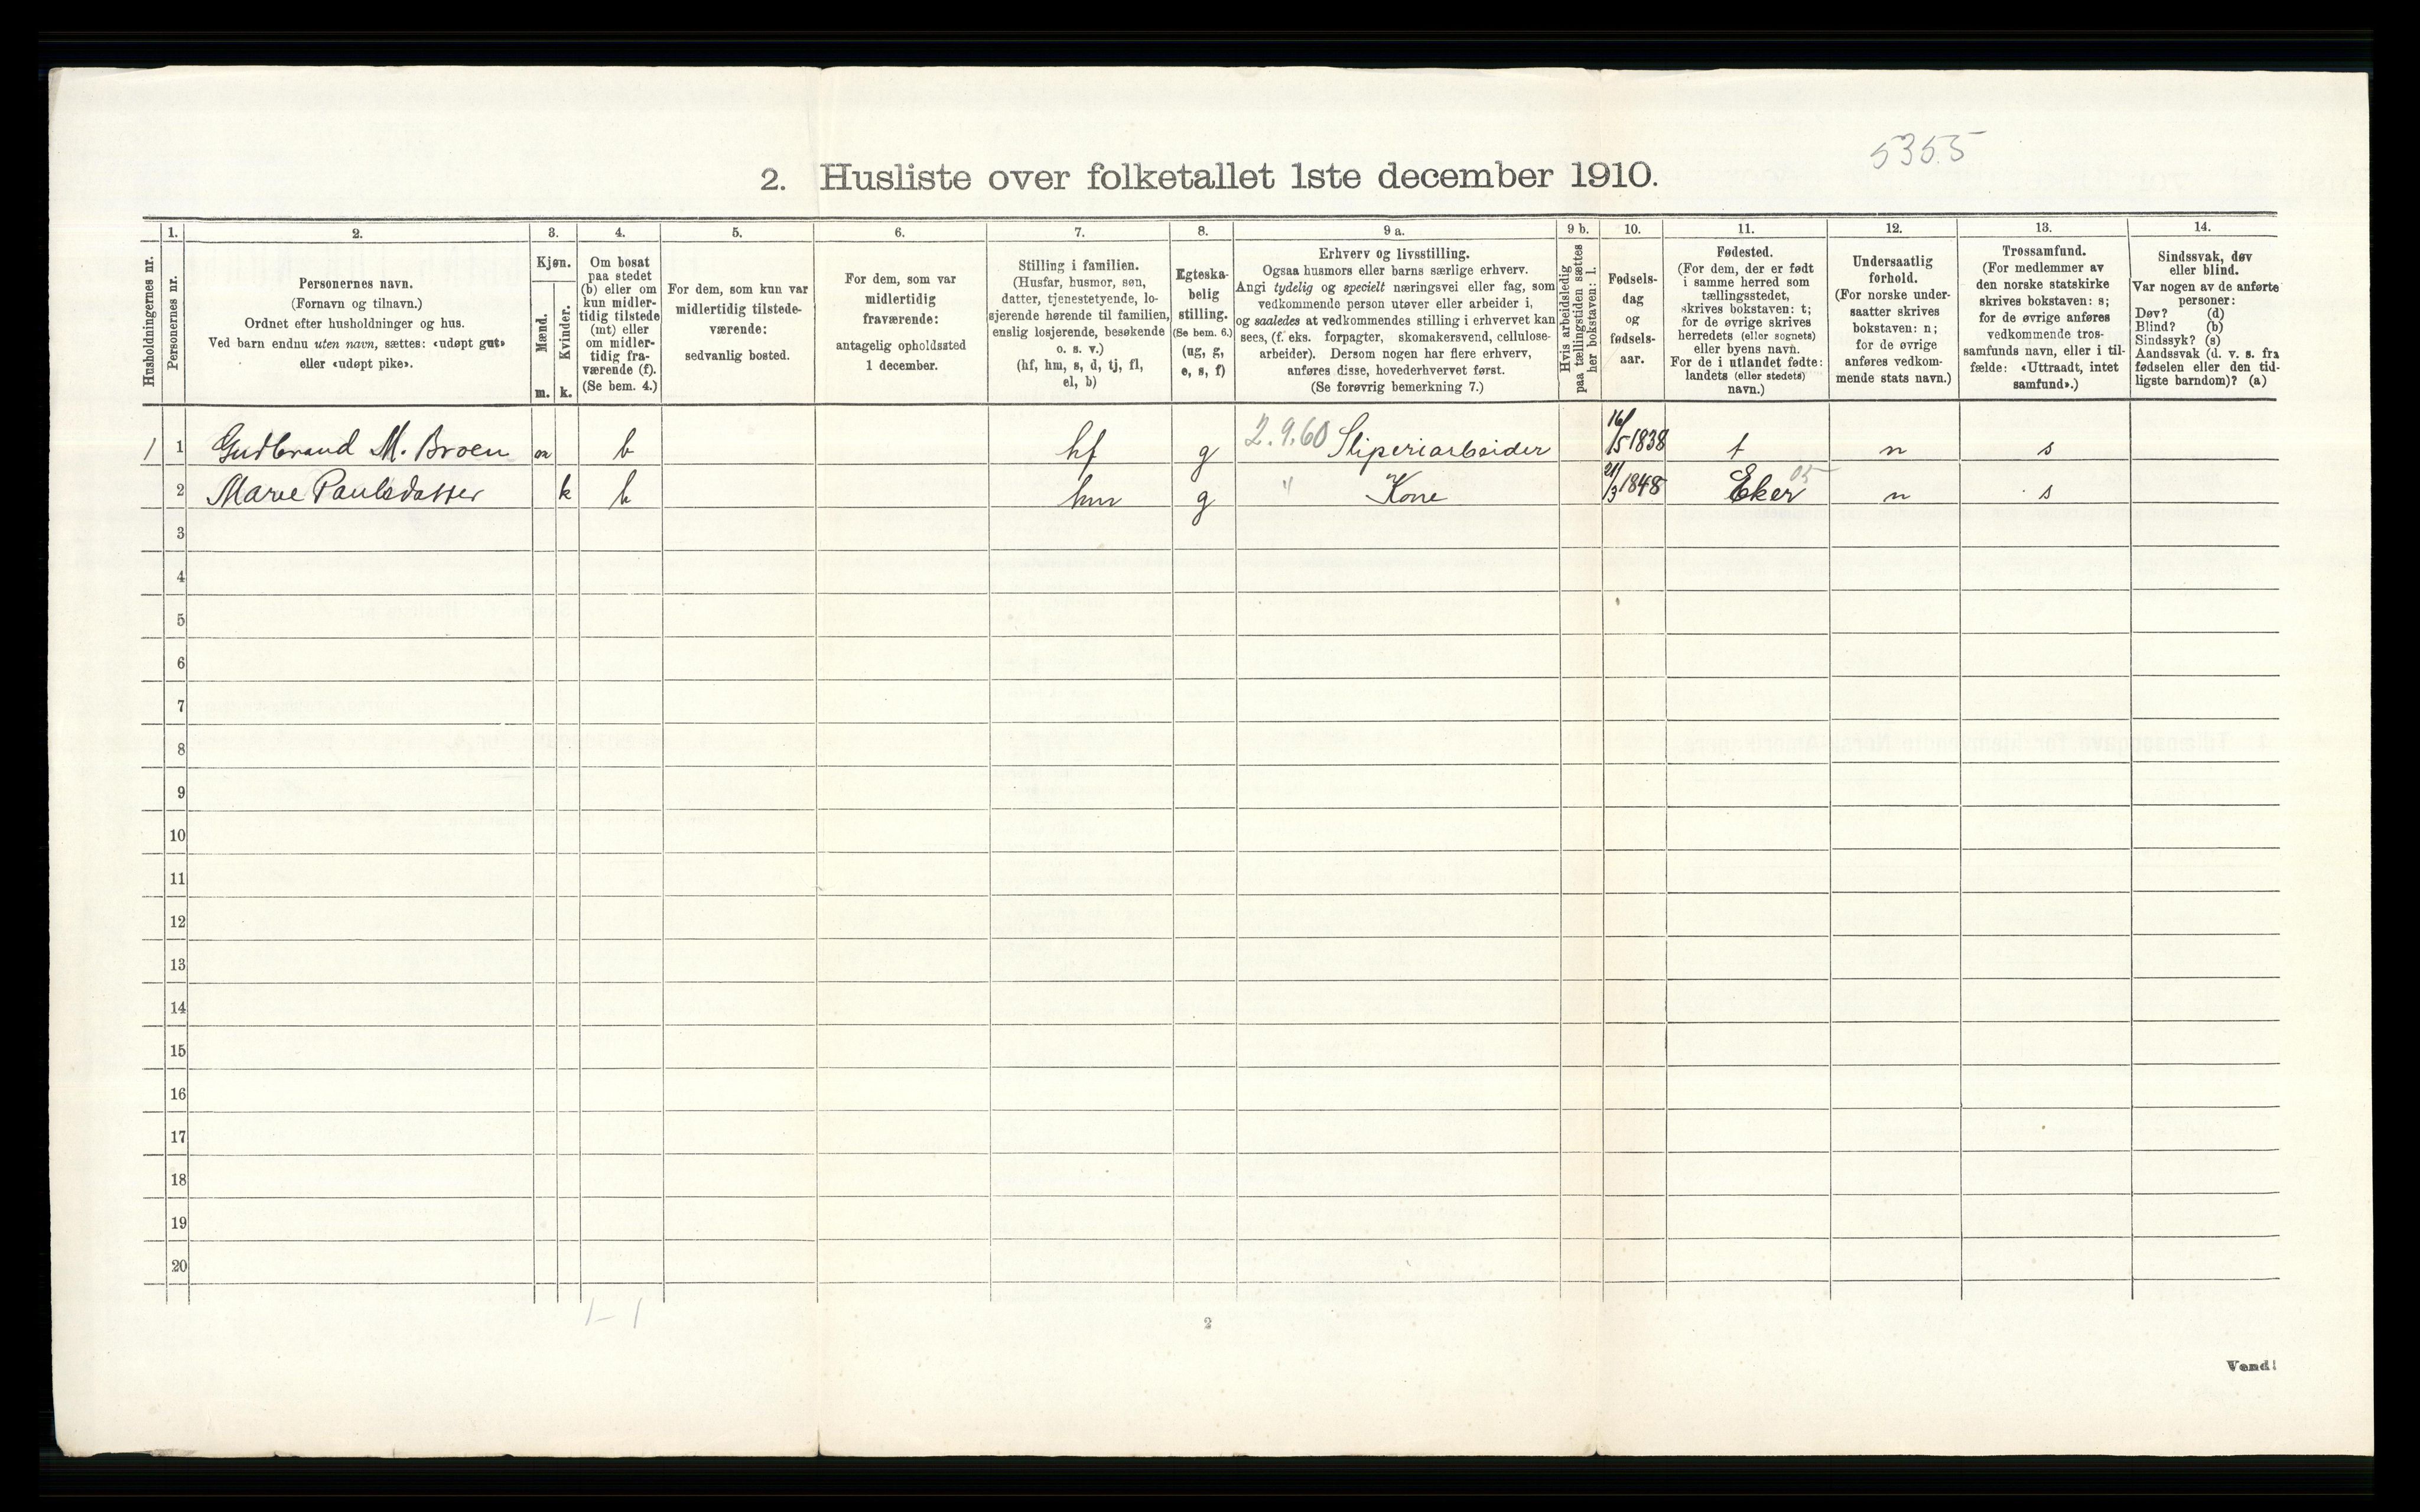 5355
2. Husliste over folketallet 1ste december 1910.
Husholdningernes nr.
1.
Personernes nr.
2.
Personernes navn.
(Fornavn og tilnavn.)
Ordnet efter husholdninger og hus.
Ved barn endnu uten navn, sættes: «udøpt gut»
eller «udøpt pike».
3.
Kjøn.
Mænd.
m.
Kvinder.
k.
4.
Om bosat
paa stedet
(b) eller om
kun midler-
tidig tilstede
(mt) eller
om midler-
tidig fra-
værende (f).
(Se bem. 4.)
5.
For dem, som kun var
midlertidig tilstede-
værende:
sedvanlig bosted.
6.
For dem, som var
midlertidig
fraværende:
antagelig opholdssted
1 december.
7.
Stilling i familien.
(Husfar, husmor, søn,
datter, tjenestetyende, lo-
sjerende hørende til familien,
enslig losjerende, besøkende
o. s. v.)
(hf, hm, s, d, tj, fl,
el, b)
8.
Egteska-
belig
stilling.
(Se bem. 6.)
(ug, g,
e, s, f)
9 a.
Erhverv og livsstilling.
Ogsaa husmors eller barns særlige erhverv.
Angi tydelig og specielt næringsvei eller fag, som
vedkommende person utøver eller arbeider i,
og saaledes at vedkommendes stilling i erhvervet kan
sees, (f. eks. forpagter, skomakersvend, cellulose-
arbeider). Dersom nogen har flere erhverv,
anføres disse, hovederhvervet først.
(Se forøvrig bemerkning 7.)
9 b.
Hvis arbeidsledig
paa tællingstiden sættes
her bokstaven: l.
10.
Fødsels-
dag
og
fødsels-
aar.
11.
Fødested.
(For dem, der er født
i samme herred som
tællingsstedet,
skrives bokstaven: t;
for de øvrige skrives
herredets (eller sognets)
eller byens navn.
For de i utlandet fødte:
landets (eller stedets)
navn.)
12.
Undersaatlig
forhold.
(For norske under-
saatter skrives
bokstaven: n;
for de øvrige
anføres vedkom-
mende stats navn.)
13.
Trossamfund.
(For medlemmer av
den norske statskirke
skrives bokstaven: s;
for de øvrige anføres
vedkommende tros-
samfunds navn, eller i til-
fælde: «Uttraadt, intet
samfund».)
14.
Sindssvak, døv
eller blind.
Var nogen av de anførte
personer:
Døv? (d)
Blind? (b)
Sindssyk? (s)
Aandssvak (d. v. s. fra
fødselen eller den tid-
ligste barndom)? (a)
1 1 Gudbrand M. Broen m b hf g 2.9.60 Sliperiarbeider 16/5 1838 t n s
2 Marie Paulsdatter k b hm g " Kone 21/3 1848 Eker 05 n s
3
4
5
6
7
8
9
10
11
12
13
14
15
16
17
18
19
20
1 – 1
2
Vend!